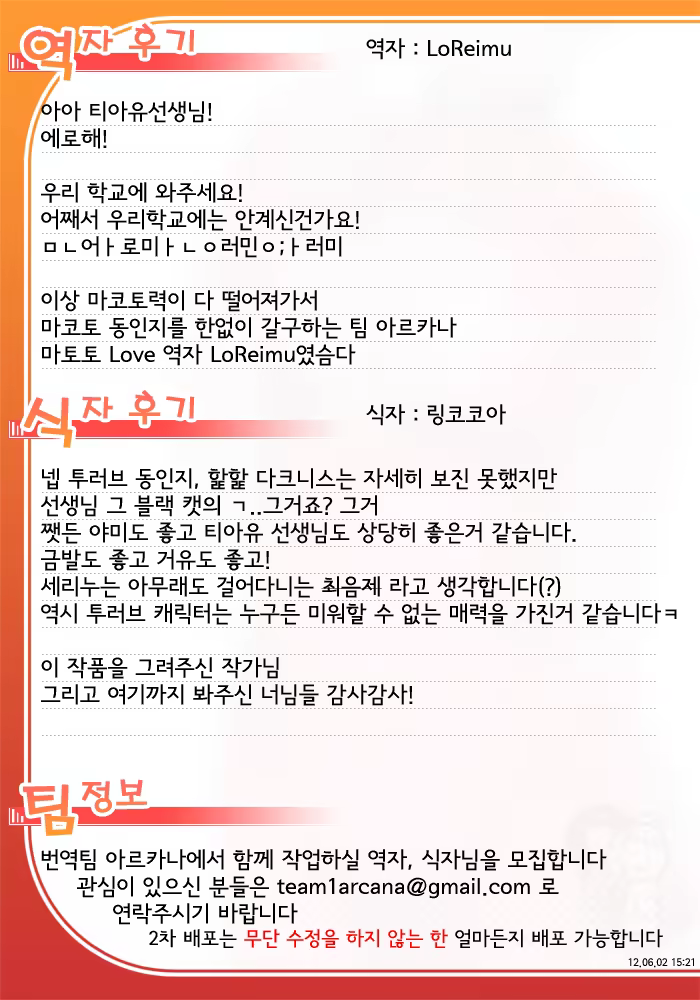 역자 후기
역자 : LoReimu
아아 티아유선생님!
에로해!
우리 학교에 와주세요!
어째서 우리학교에는 안계신건가요!
ㅁㄴ어ㅏ로미ㅏㄴㅇ러민ㅇ;ㅏ러미
이상 마코토력이 다 떨어져가서
마코토 동인지를 한없이 갈구하는 팀 아르카나
마토토 Love 역자 LoReimu였슴다
식자 후기
식자 : 링코코아
넵 투러브 동인지, 핥핥 다크니스는 자세히 보진 못했지만
선생님 그 블랙 캣의 ㄱ..그거죠? 그거
쨋든 야미도 좋고 티아유 선생님도 상당히 좋은거 같습니다.
금발도 좋고 거유도 좋고!
세리누는 아무래도 걸어다니는 최음제 라고 생각합니다(?)
역시 투러브 캐릭터는 누구든 미워할 수 없는 매력을 가진거 같습니다ㅋ
이 작품을 그려주신 작가님
그리고 여기까지 봐주신 너님들 감사감사!
팀 정보
번역팀 아르카나에서 함께 작업하실 역자, 식자님을 모집합니다
관심이 있으신 분들은 team1arcana@gmail.com 로
연락주시기 바랍니다
2차 배포는 무단 수정을 하지 않는 한 얼마든지 배포 가능합니다
12.06.02 15:21